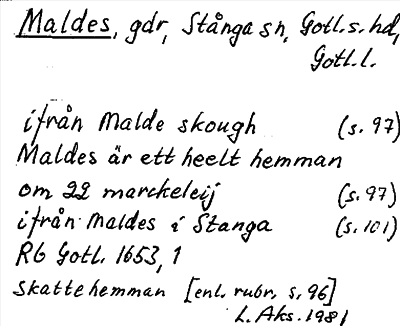 Maldes, gdr, Stånga sn, Gotl. s. hd,
Gotl. l.
ifrån Malde skough (s. 97)
Maldes är ett heelt hemman
om 22 marckeleij (s. 97)
ifrån Maldes i Stanga (s. 101)
Rb Gotl. 1653, 1
Skattehemman [enl. rubr. s. 96]
L. Aks. 1981